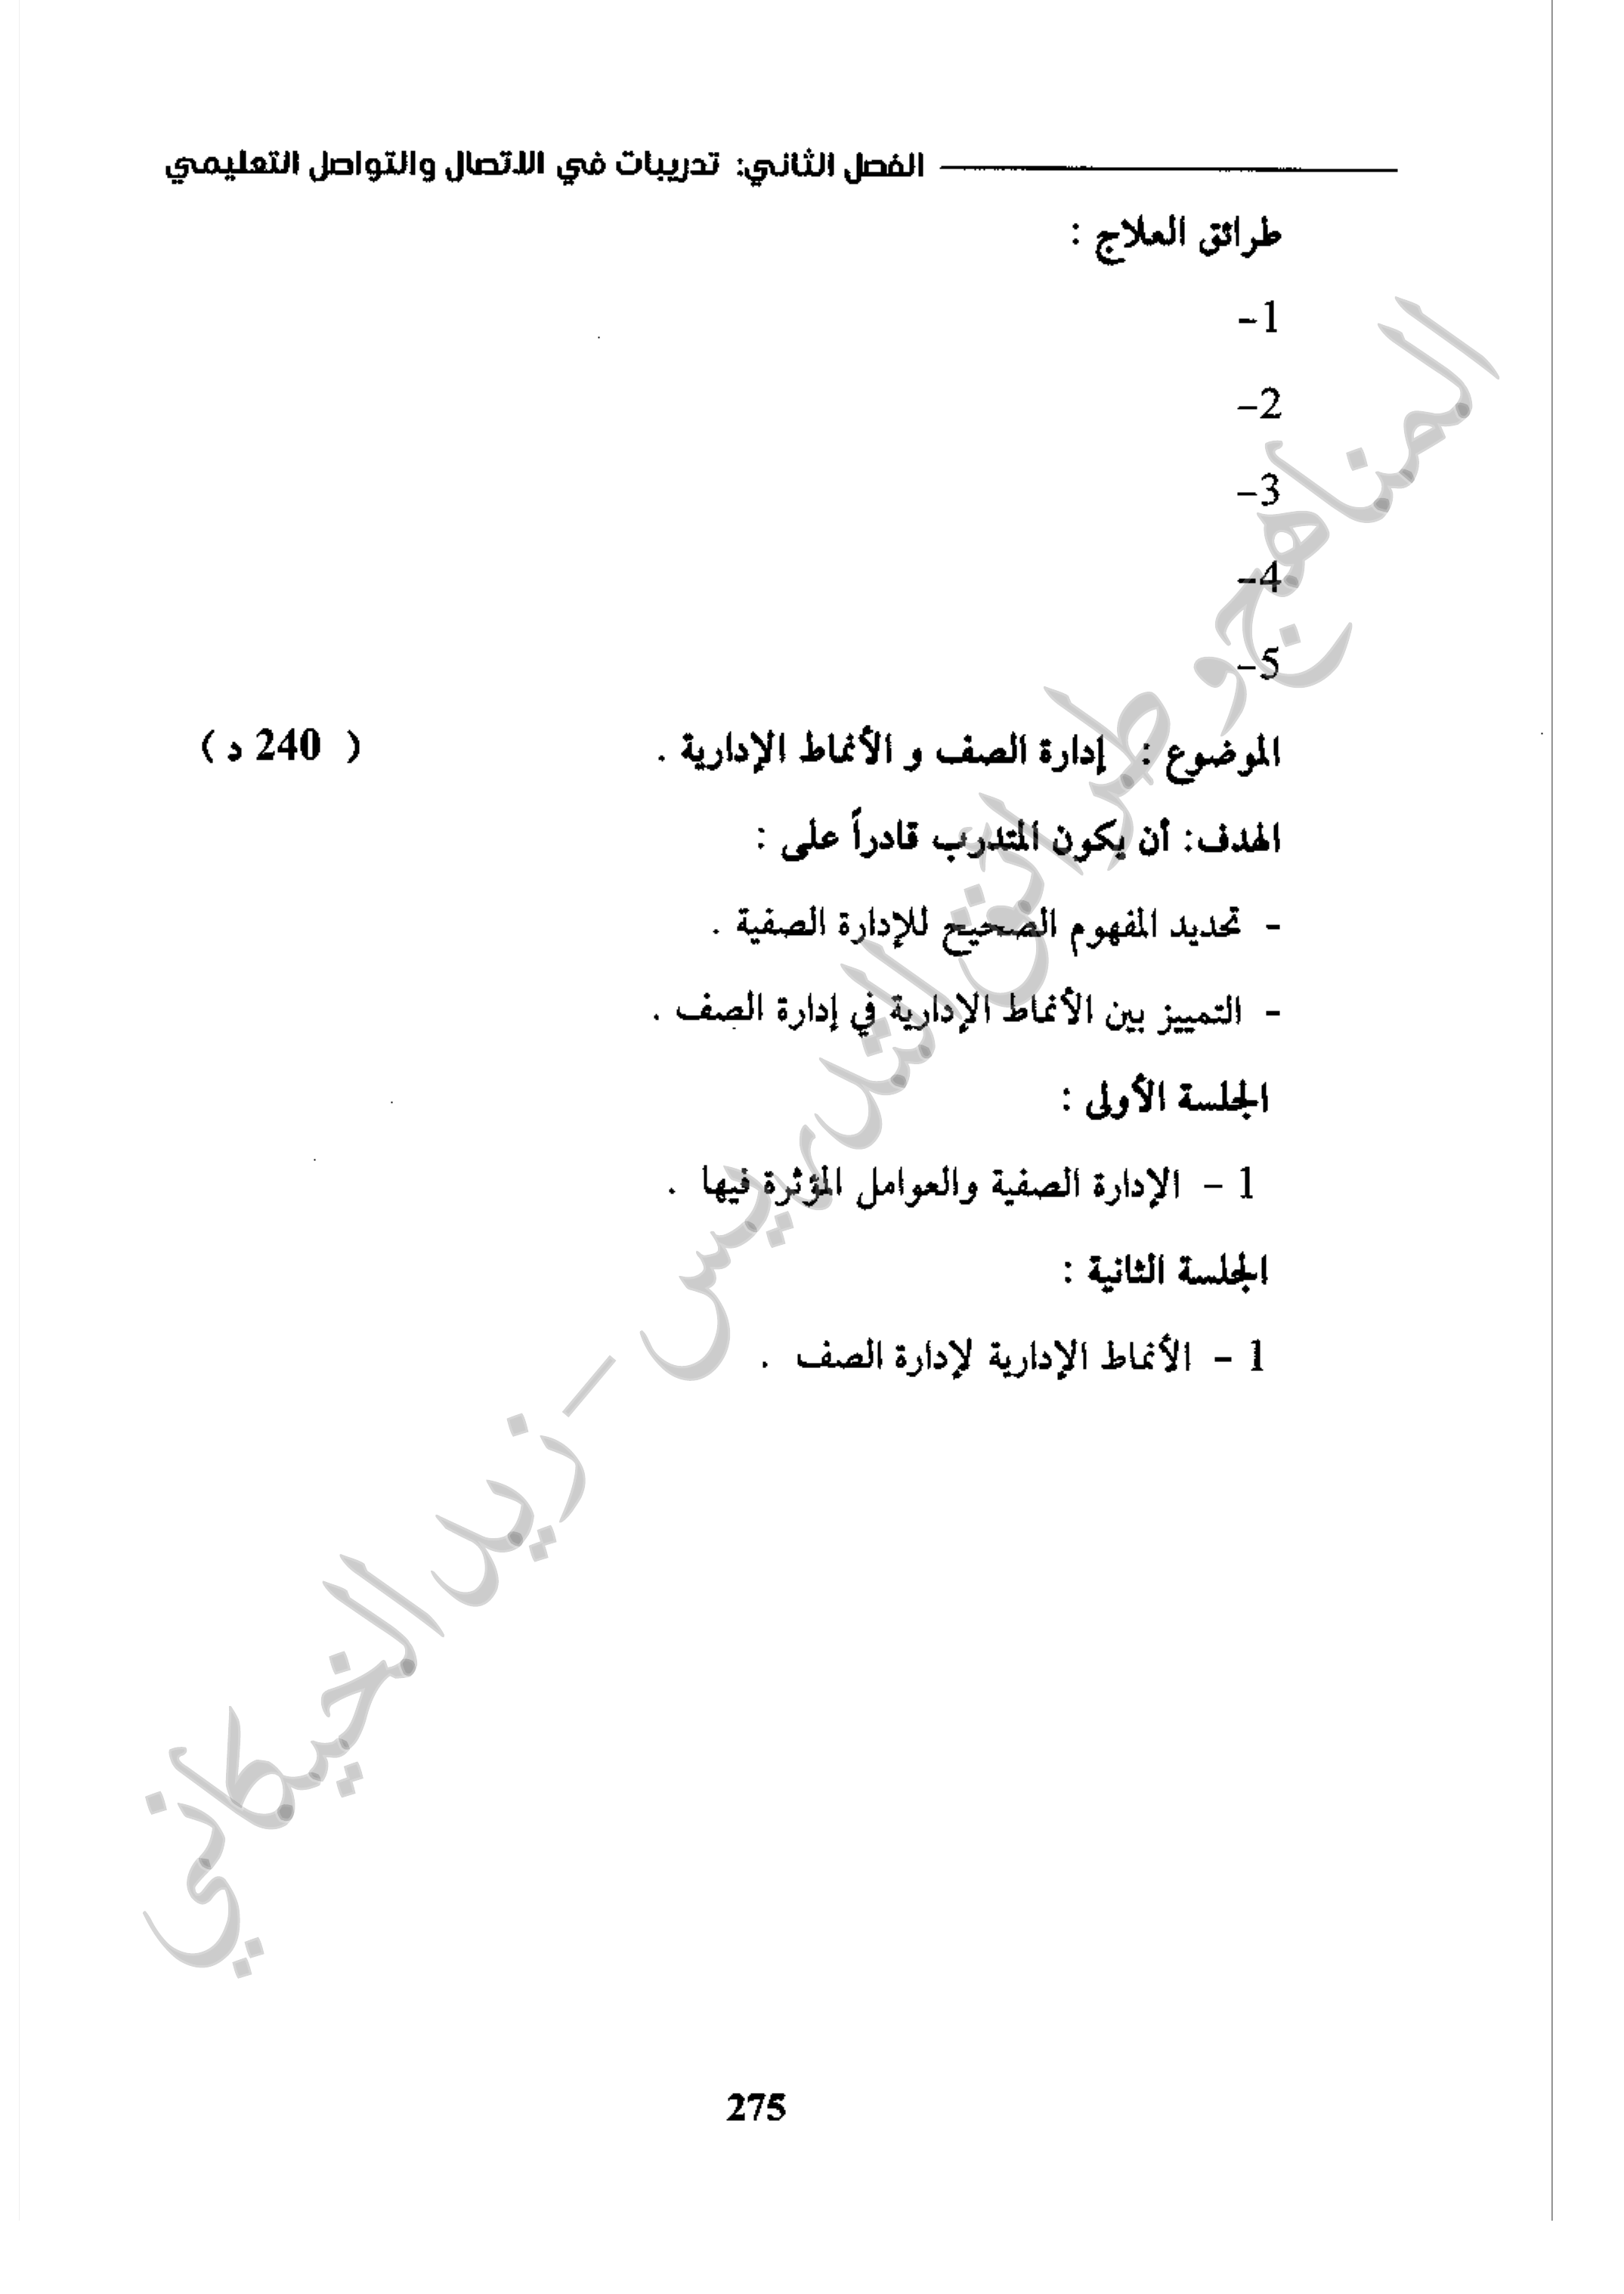 الفصل الثاني: تدريبات في الاتصال والتواصل التعليمي
طرائق العلاج :
1-
2-
3-
4-
5-
الموضوع : إدارة الصف و الأنماط الإدارية . ( 240 د )
الهدف: أن يكون المتدرب قادراً على :
- تحديد المفهوم الصحيح للإدارة الصفية .
- التمييز بين الأنماط الإدارية في إدارة الصف .
الجلسة الأولى :
1 - الإدارة الصفية والعوامل المؤثرة فيها .
الجلسة الثانية :
1 - الأنماط الإدارية لإدارة الصف .
المناهج وطرائق التدريس - زيد الخيكاني
275